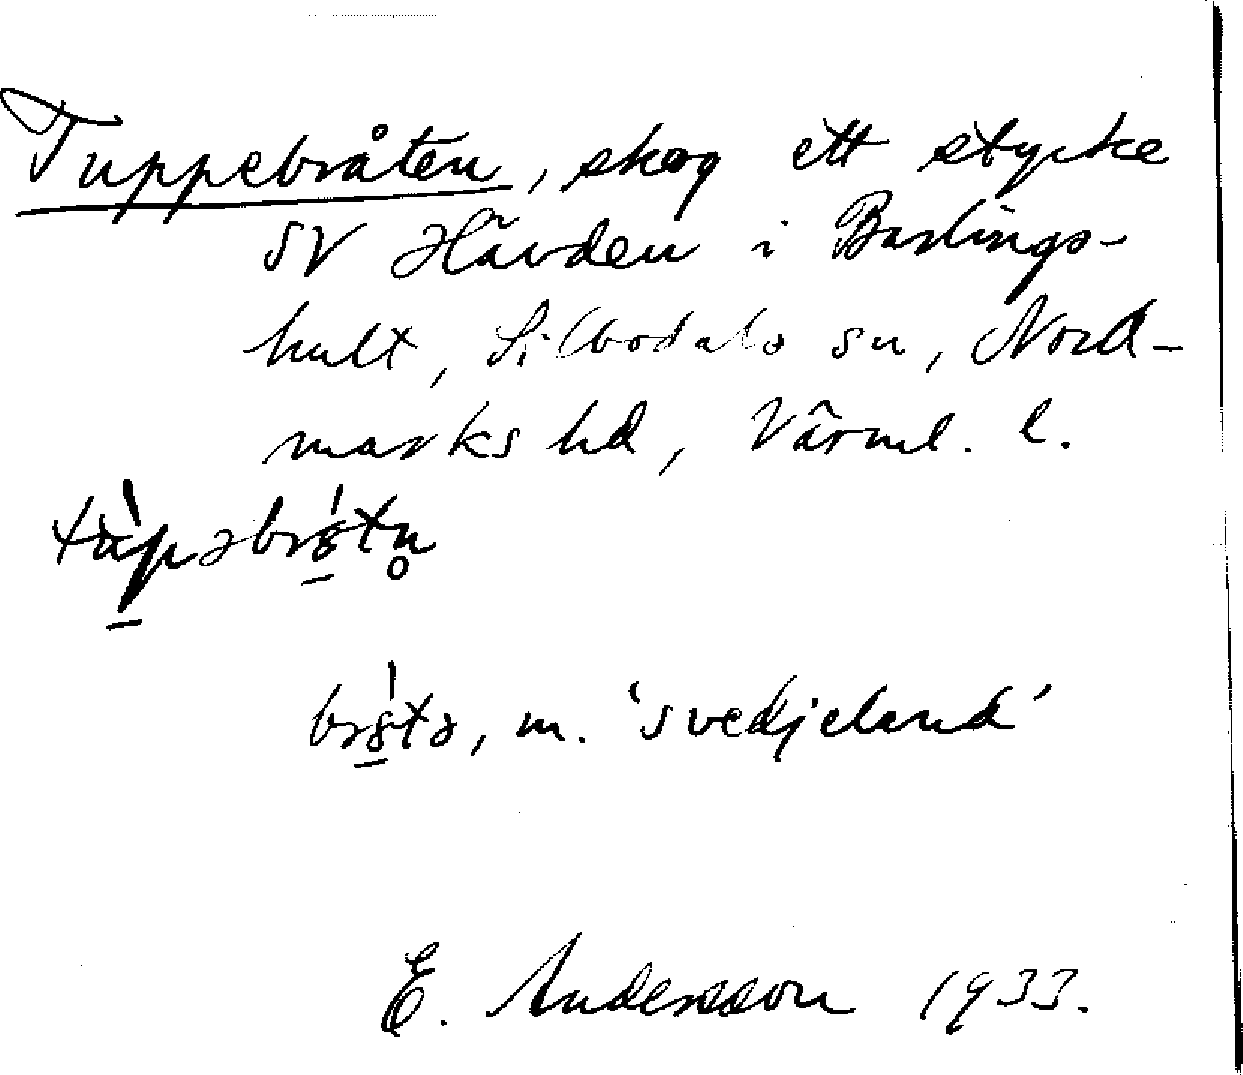 Tuppebråten, skog ett stycke
SV Hävden i Barlings-
hult, Silbodals sn, Nord-
marks hd, Värml. l.
tùpəbrə́tn̥
brə́tə, m. 'svedjeland'
E. Andersson 1933.